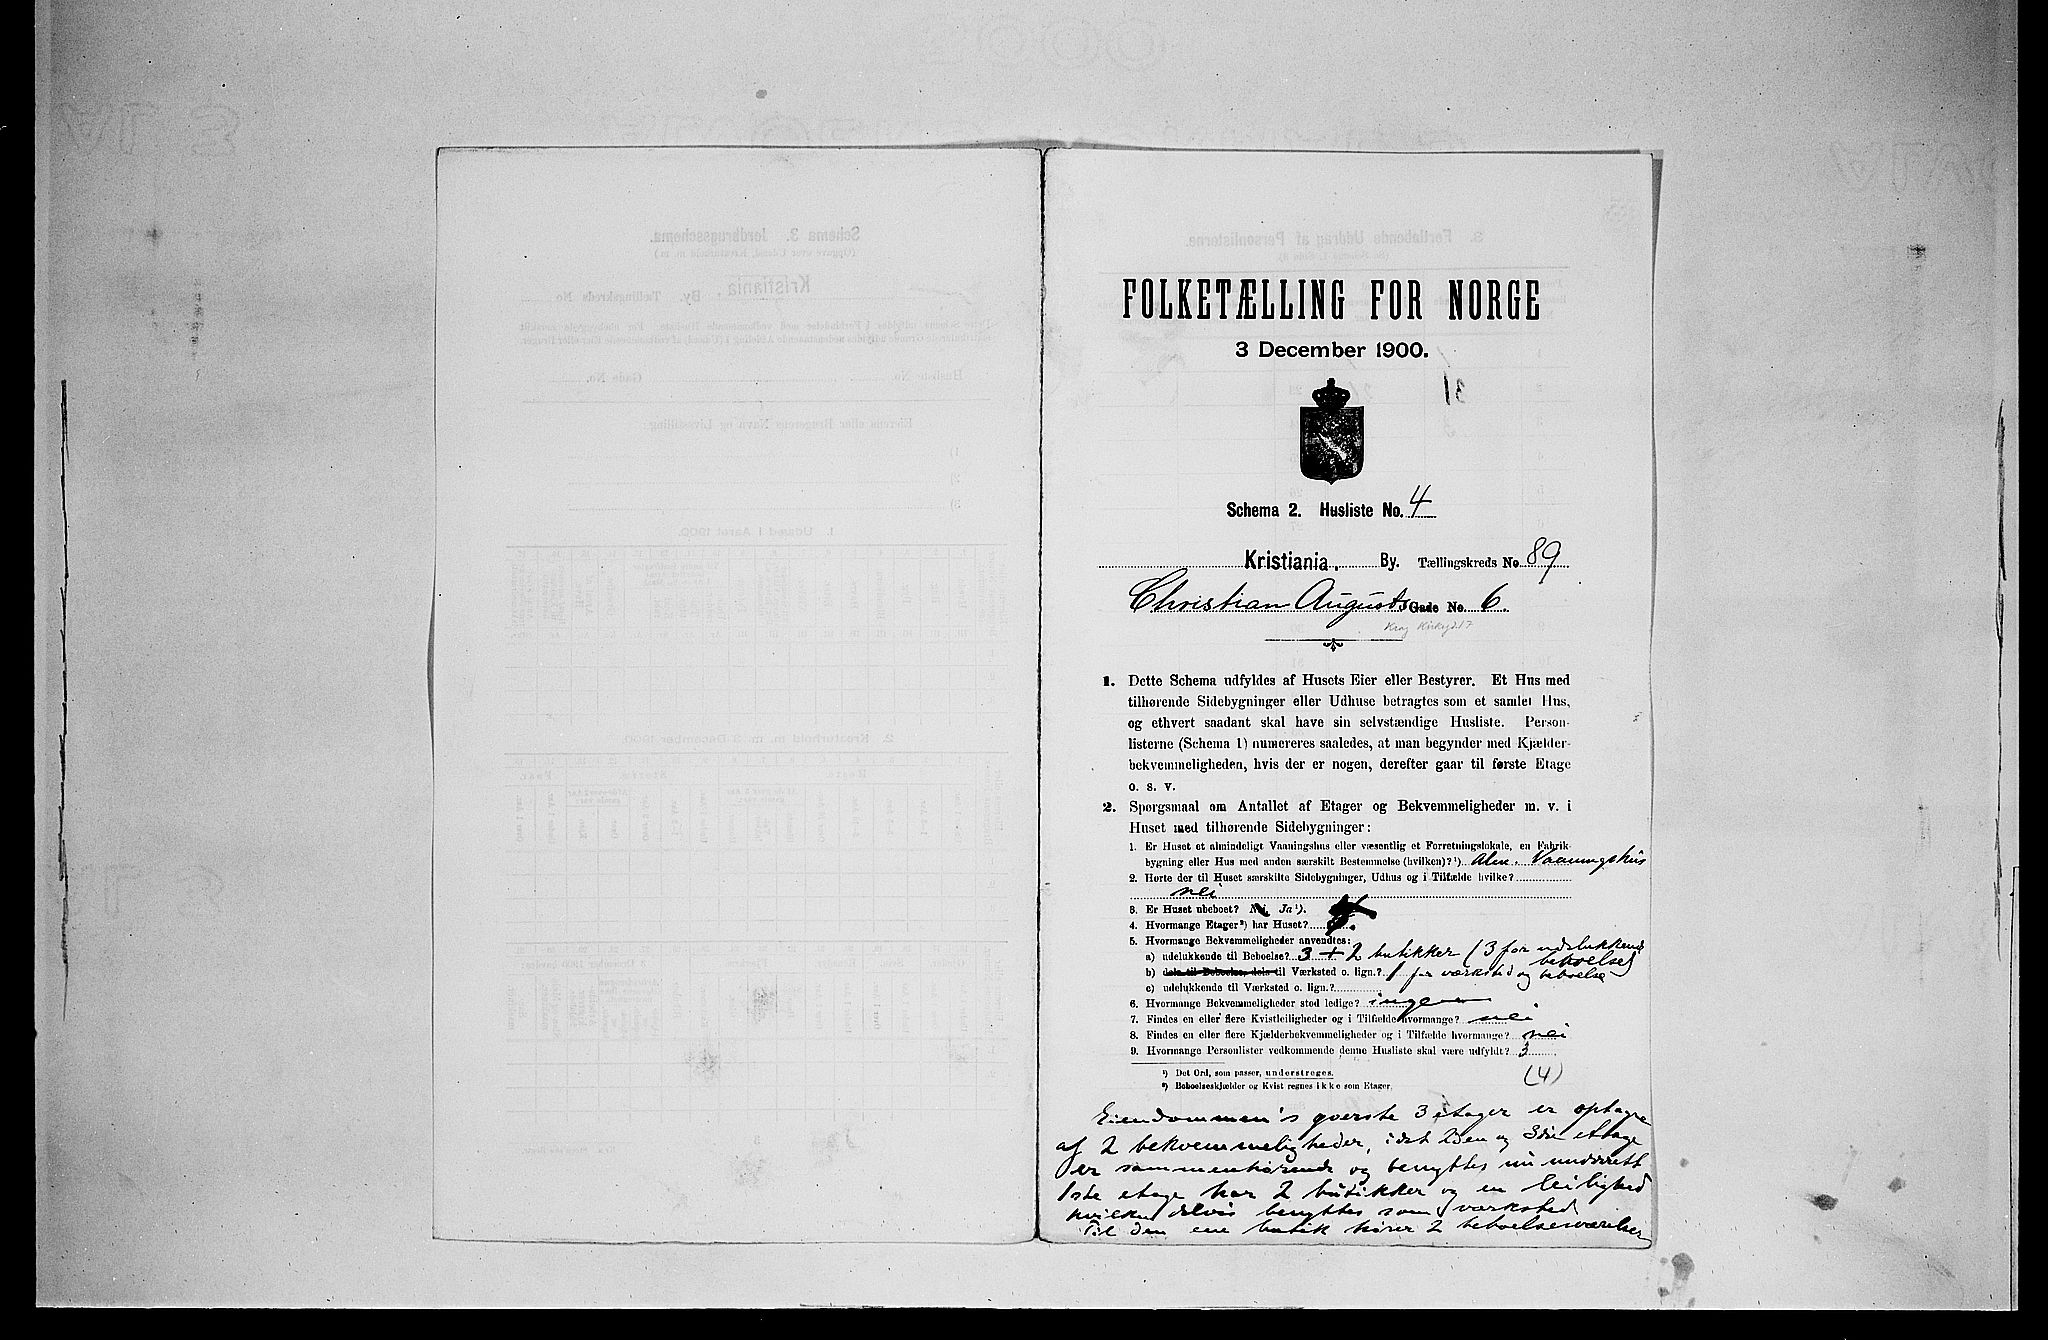 FOLKETÆLLING FOR NORGE
3 December 1900.
Schema 2. Husliste No. 4
Kristiania. By. Tællingskreds No 89
Christian Augusts Gade No. 6.
1. Dette Schema udfyldes af Husets Eier eller Bestyrer. Et Hus med
tilhørende Sidebygninger eller Udhuse betragtes som et samlet Hus,
og ethvert saadant skal have sin selvstændige Husliste. Person-
listerne (Schema 1) numereres saaledes, at man begynder med Kjælder-
bekvemmeligheden, hvis der er nogen, derefter gaar til første Etage
o. s. v.
2. Spørgsmaal om Antallet af Etager og Bekvemmeligheder m. v. i
Huset med tilhørende Sidebygninger:
1. Er Huset et almindeligt Vaaningshus eller væsentlig et Forretningslokale, en Fabrik-
bygning eller Hus med anden særskilt Bestemmelse (hvilken)?¹) Alm. Vaaningshus
2. Hørte der til Huset særskilte Sidebygninger, Udhus og i Tilfælde hvilke?
nei
3. Er Huset ubeboet? Nei. Ja¹).
4. Hvormange Etager²) har Huset?
5. Hvormange Bekvemmeligheder anvendtes:
a) udelukkende til Beboelse? 3 + 2 butikker (3 for udelukkende
beboelse)
b) dels til Beboelse, dels til Værksted o. lign.? 1 for værksted og beboelse
c) udelukkende til Værksted o. lign.?
6. Hvormange Bekvemmeligheder stod ledige? ingen
7. Findes en eller flere Kvistleiligheder og i Tilfælde hvormange? nei
8. Findes en eller flere Kjælderbekvemmeligheder og i Tilfælde hvormange? nei
9. Hvormange Personlister vedkommende denne Husliste skal være udfyldt? 3
(4)
¹) Det Ord, som passer, understreges.
²) Beboelseskjælder og Kvist regnes ikke som Etager.
Eiendommen's øverste 3 etager er optagne
af 2 bekvemmeligheder, idet 2den og 3die etage
er sammenhørende og benyttes nu
1ste etage har 2 butikker og en leilighed
hvilken delvis benyttes som værksted
Til den ene butik hører 2 beboelsesværelser